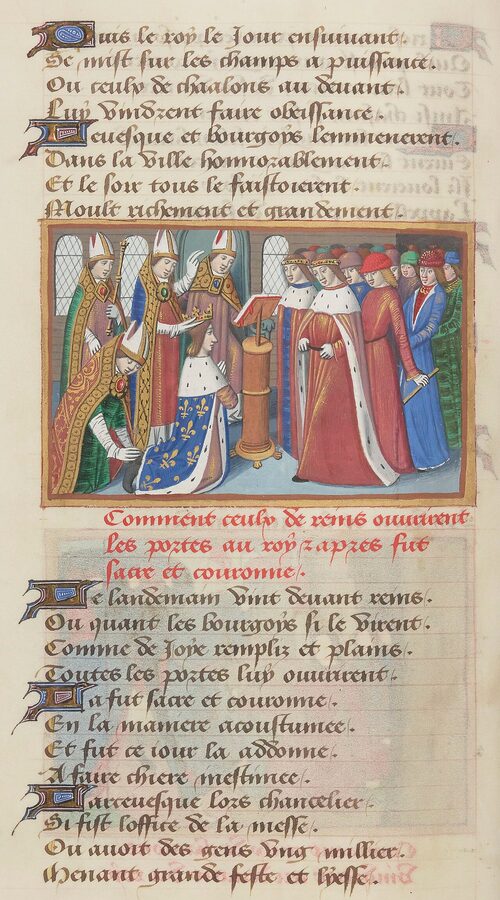 Puis le roy le Jour ensuivant
Se mist sur les champs a puissance.
Ou ceulx de chaalons au devant
Luy vindrent faire obeissance.
Levesque et bourgoys lemmenerent.
Dans la ville honnorablement
Et le soir tous le faistoierent.
Moult richement et grandement
Comment ceulx de reims ouvrirent
les portes au roy z apres fut
sacre et couronne.
Le landemain vint devant reins.
Ou quant les bourgoys si le virent.
Comme de Joye rempliz et plains.
Toutes les portes luy ouvrirent.
La fut sacre et couronne.
En la maniere acoustumee.
Et fut ce iour la addonne.
A faire chiere mestinee.
Larcevesque lors chancelier
Si fist loffice de la messe.
Ou avoit des gens ung millier.
Menant grande feste et lyesse.